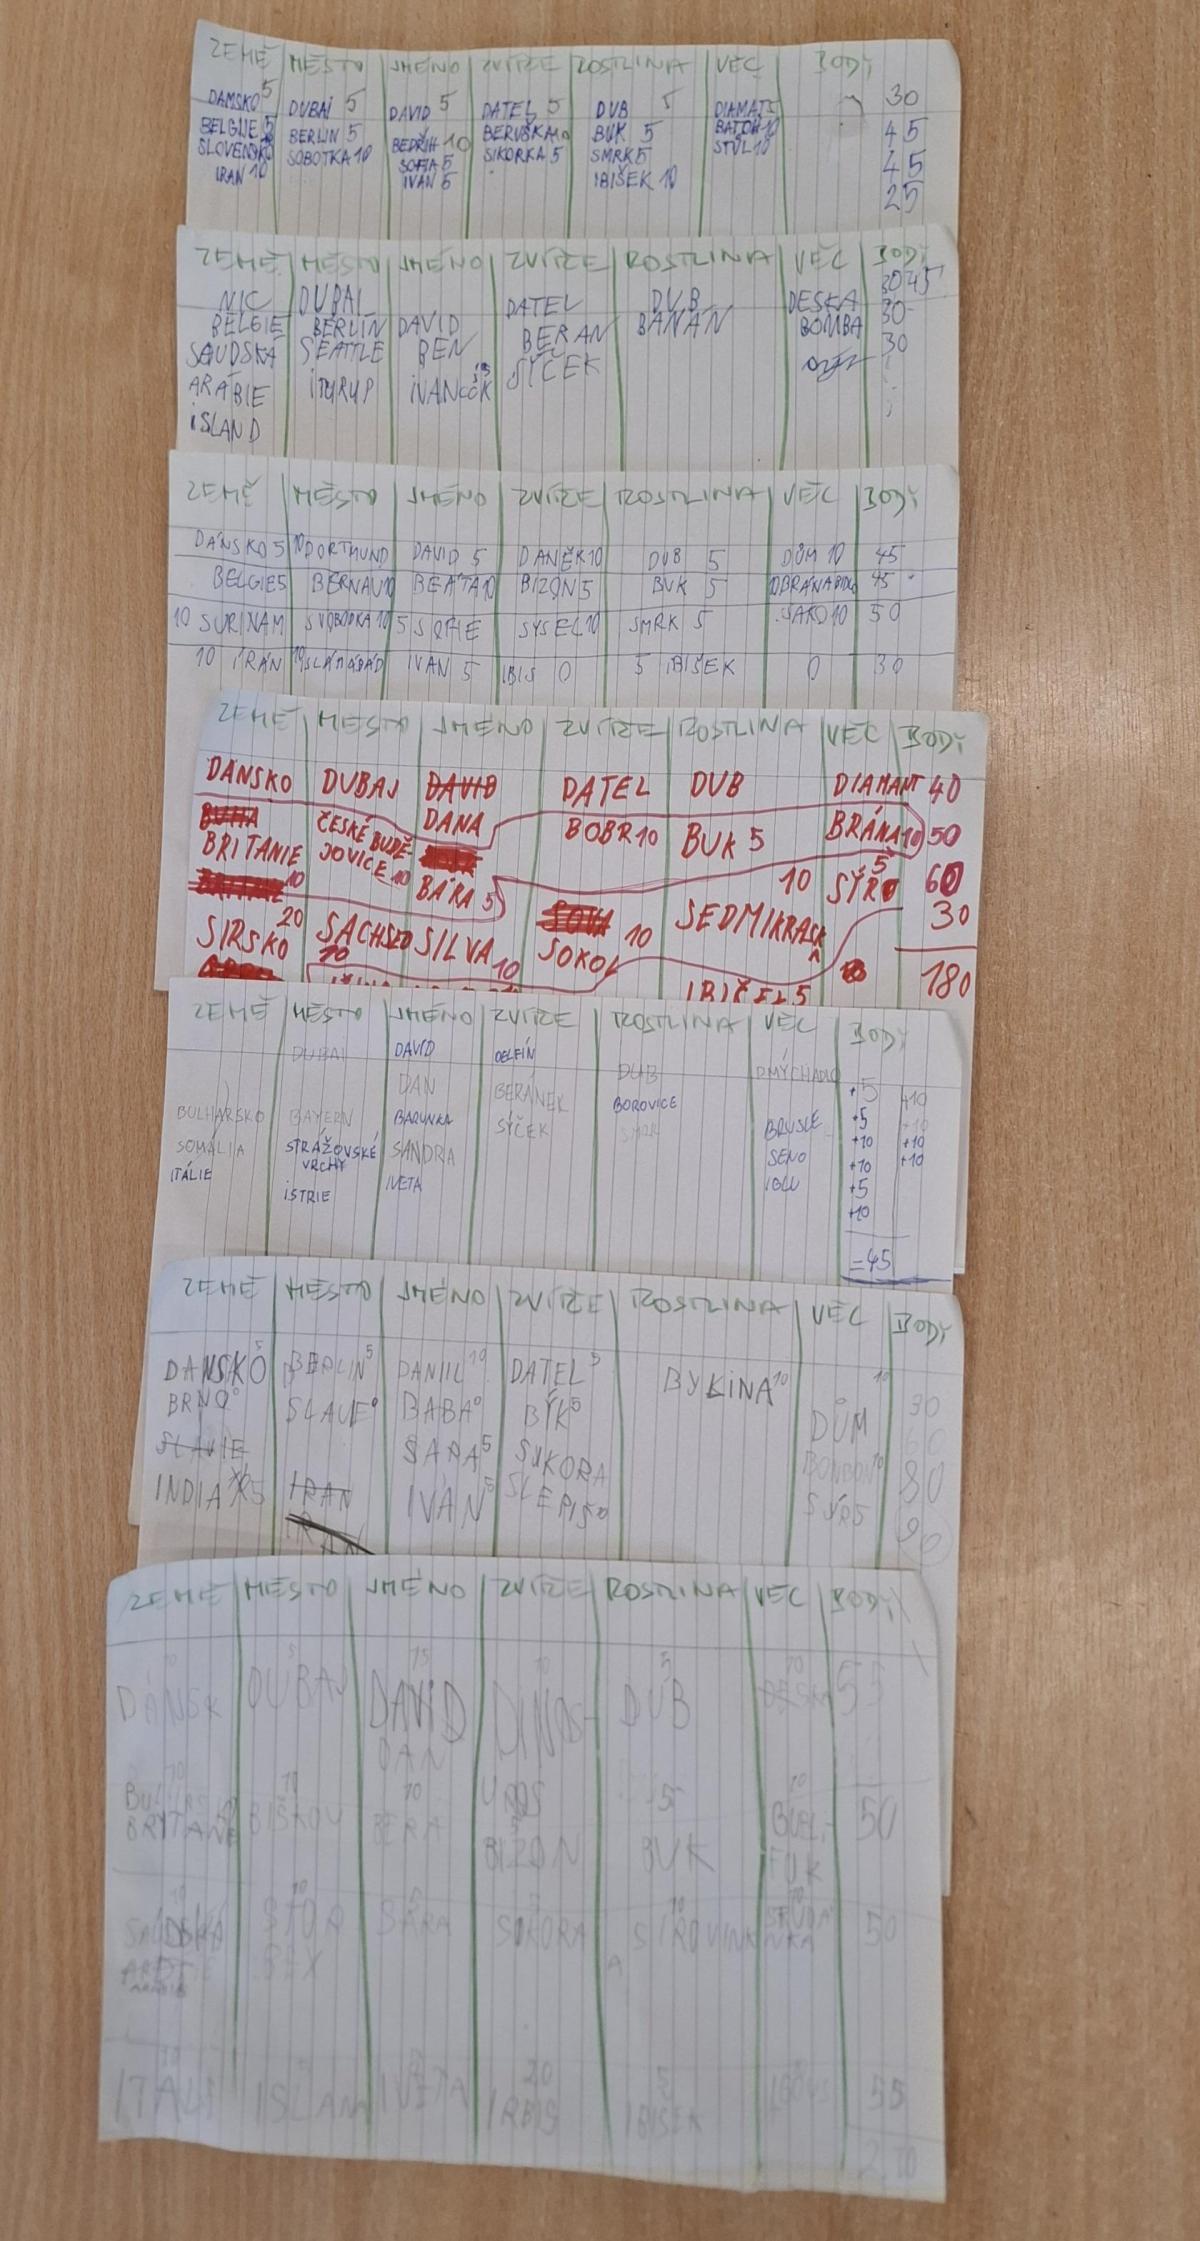 ZEMĚ MĚSTO JMÉNO ZVÍŘE ROSTLINA VĚC BODY
DAMSKO 5 DUBAI 5 DAVID 5 DATEL 5 DUB 5 DIAMAT 5 30
BELGIJE 5 BERLIN 5 BEDŘIH 10 BERUŠKA 10 BUK 5 BATOH 10 45
SLOVENSKO SOBOTKA 10 SOFIA 5 SIKORKA 5 SMRK 5 STŮL 10 45
IRAN 10 IVAN 5 IBIŠEK 10 25
ZEMĚ MĚSTO JMÉNO ZVÍŘE ROSTLINA VĚC BODY
NIC DUBAI DATEL DUB DESKA 30 45
BELGIE BERLÍN DAVID BERAN BANÁN BOMBA 30
SAUDSKÁ SEATTLE BEN SÝČEK 30
ARÁBIE ITURUP
ISLAND
ZEMĚ MĚSTO JMÉNO ZVÍŘE ROSTLINA VĚC BODY
DÁNSKO 5 10 DORTMUND DAVID 5 DANĚK 10 DUB 5 DŮM 10 45
BELGIE 5 BERNAU 10 BEÁTA 10 BIZON 5 BUK 5 45
10 SURINAM SVOBODKA 10 5 SOFIE SYSEL 10 SMRK 5 SAKO 10 50
10 ÍRÁN 10 ISLÁMÁBÁD IVAN 5 IBIS 0 5 IBIŠEK 0 30
ZEMĚ MĚSTO JMÉNO ZVÍŘE ROSTLINA VĚC BODY
DÁNSKO DUBAJ DAVID DATEL DUB DIAMANT 40
ČESKÉ BUDĚ- DANA BOBR 10 BUK 5 BRÁNA 10 50
BRITANIE 10 JOVICE 10 BÁRA 5 10 SÝR 5 60
SOVA
SIRSKO 20 SACHSED 10 SILVA 10 SOKOL 10 SEDMIKRASK 30
A
180
IBIČEL 5
ZEMĚ MĚSTO JMÉNO ZVÍŘE ROSTLINA VĚC BODY
DUBAI DAVID DELFÍN DUB DMÝCHADLO
DAN BERÁNEK BOROVICE +5 +10
BULHARSKO BAYERN BARUNKA SÝČEK SMRK BRUSLE +5 +10
SOMÁLIA STRÁŽOVSKÉ SANDRA SENO +10 +10
VRCHY
ITÁLIE ISTRIE IVETA IGLU +10 +10
+5
+10
=45
ZEMĚ MĚSTO JMÉNO ZVÍŘE ROSTLINA VĚC BODY
DANSKO 5 BERLIN 5 DANIIL 10 DATEL 5 BYLINA 10 10
BRNO 0 SLAVE 0 BABA 0 BÝK 5 DŮM 30
SLAVIE SARA 5 SUKORA BONBON 10 60
INDIA 5 IRAN IVAN 5 SLEPIŠ SÝR 5 80
IRAN 90
ZEMĚ MĚSTO JMÉNO ZVÍŘE ROSTLINA VĚC BODY
10 5 15 10 5 10
DÁNSK DUBAJ DAVID DINOS- DUB DESKA 55
DAN
10 10 10 UROS 5 10
BRYTANE BIŠKOV BERA BIZON BUK BUEL- 50
FUK
10 10 5 10 10
SAUDSKÁ STOR SÁRA SOKORA SIROVINK STUDÁ 50
BEX A NKA
20 5
ITALI ISLANA IVETA IRBIS IBISEK 55